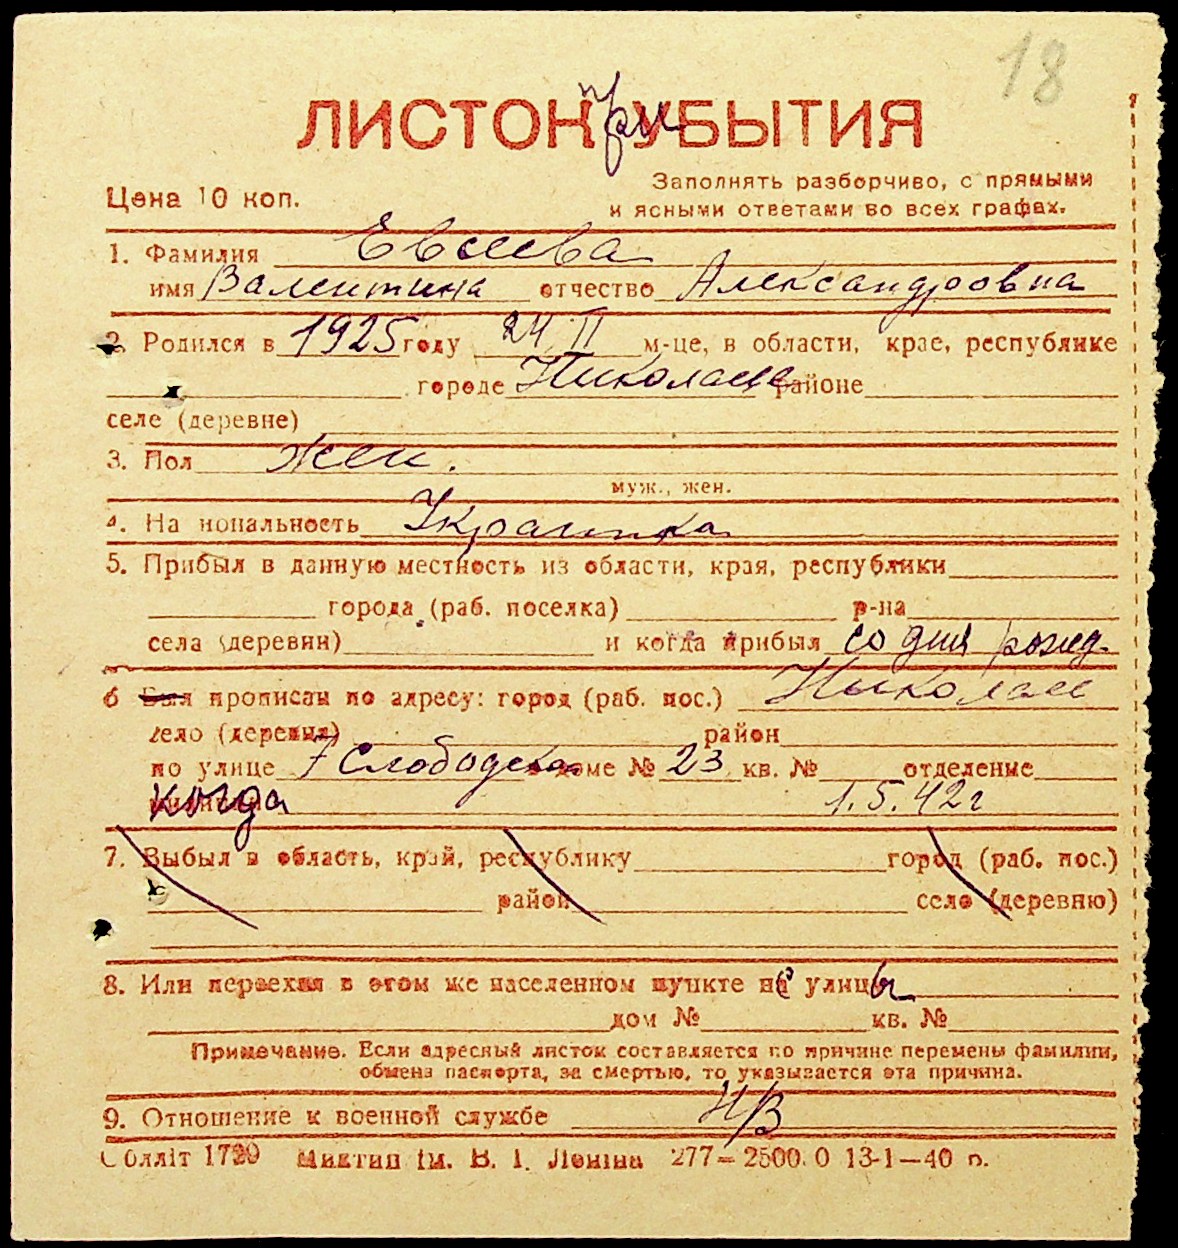 18
ЛИСТОК при УБЫТИЯ
Цена 10 коп.
Заполнять разборчиво, с прямыми
и ясными ответами во всех графах.
1. Фамилия Евсеева
имя Валентина отчество Александровна
2. Родился в 1925 году 24 II м-це, в области, крае, республике
городе Николаеве районе
селе (деревне)
3. Пол жен.
муж., жен.
4. Национальность Украинка
5. Прибыл в данную местность из области, края, республики
города (раб. поселка) р-на
села (деревни) и когда прибыл со дня рожд.
6 Был прописан по адресу: город (раб. пос.) Николаев
село (деревня) район
по улице 7 Слободская доме № 23 кв. № отделение
когда 1.5.42 г
7. Выбыл в область, край, республику город (раб. пос.)
район село (деревню)
8. Или переехал в этом же населенном пункте не улицы
дом № кв. №
Примечание. Если адресный листок составляется по причине перемены фамилии,
обмена паспорта, за смертью, то указывается эта причина.
9. Отношение к военной службе Н/В
Облліт 1729 Миктип ім. В. І. Леніна 277—2500.0 13-1—40 р.